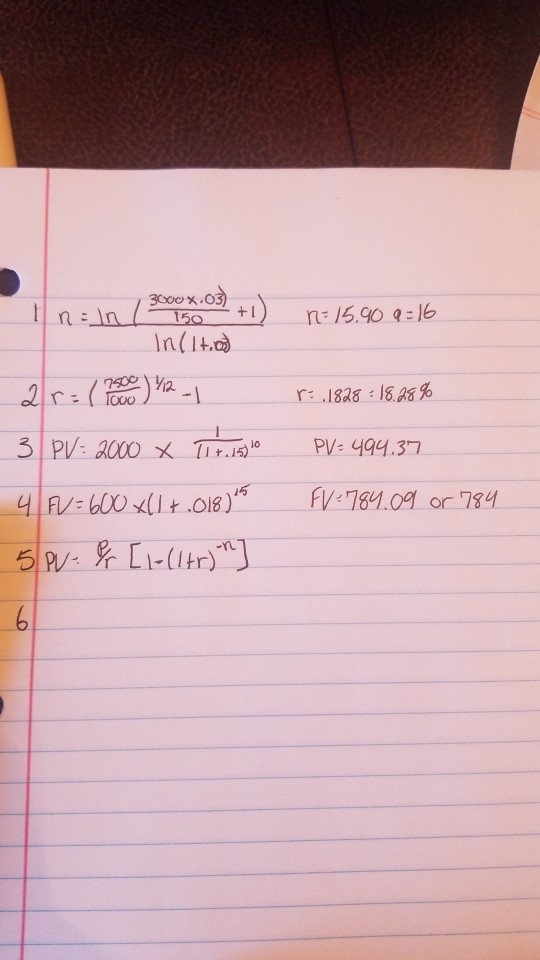 1 n = ln ( 3000 x .03) / 150 + 1 ) / ln(1+.03) n = 15.90 a = 16
2 r = (7500/1000)^1/12 - 1 r = .1828 = 18.28%
3 PV = 2000 x 1/(1+.15)^10 PV = 494.37
4 FV = 600 x (1 + .018)^15 FV = 784.09 or 784
5 PV = P/r [1-(1+r)^-n]
6